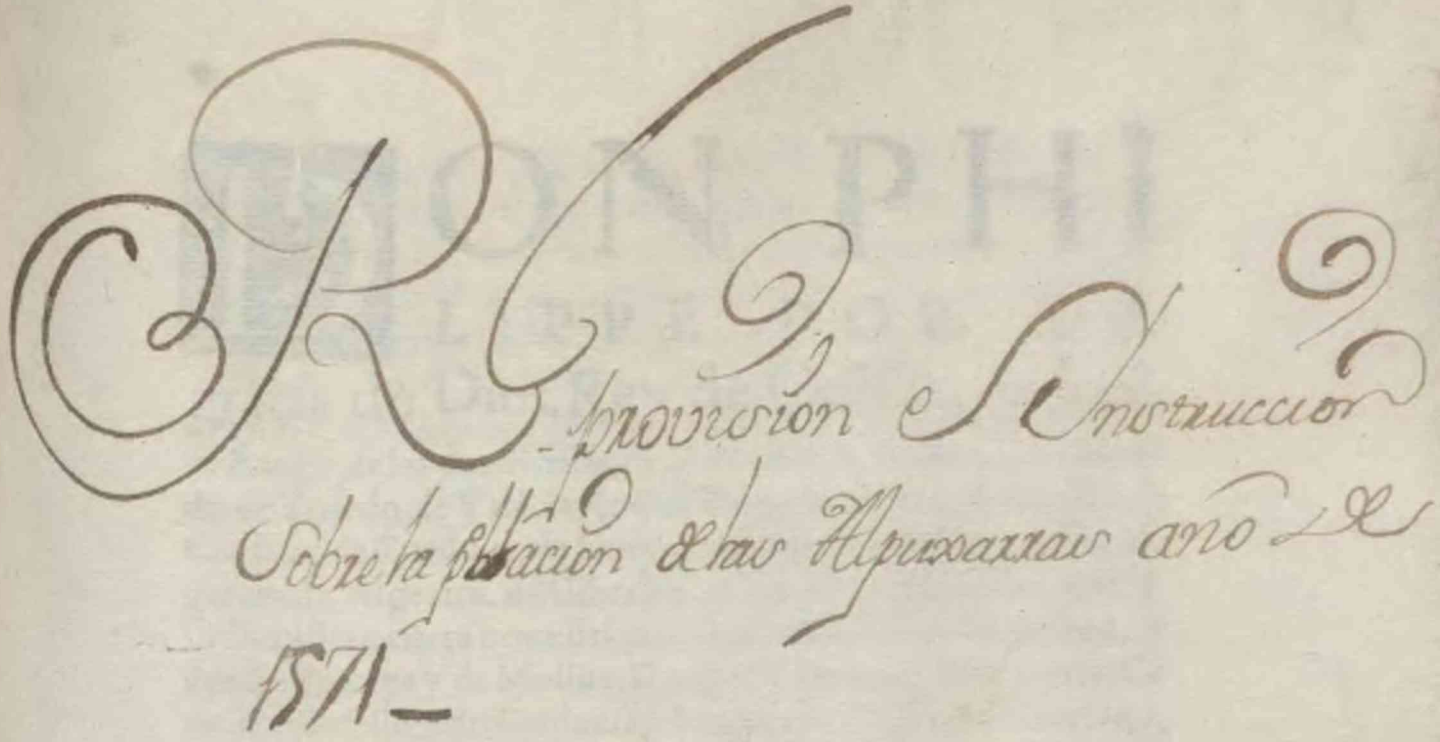 Rˡ provision e Instruccion
Sobre la poblacion de las Alpuxarras año de
1571